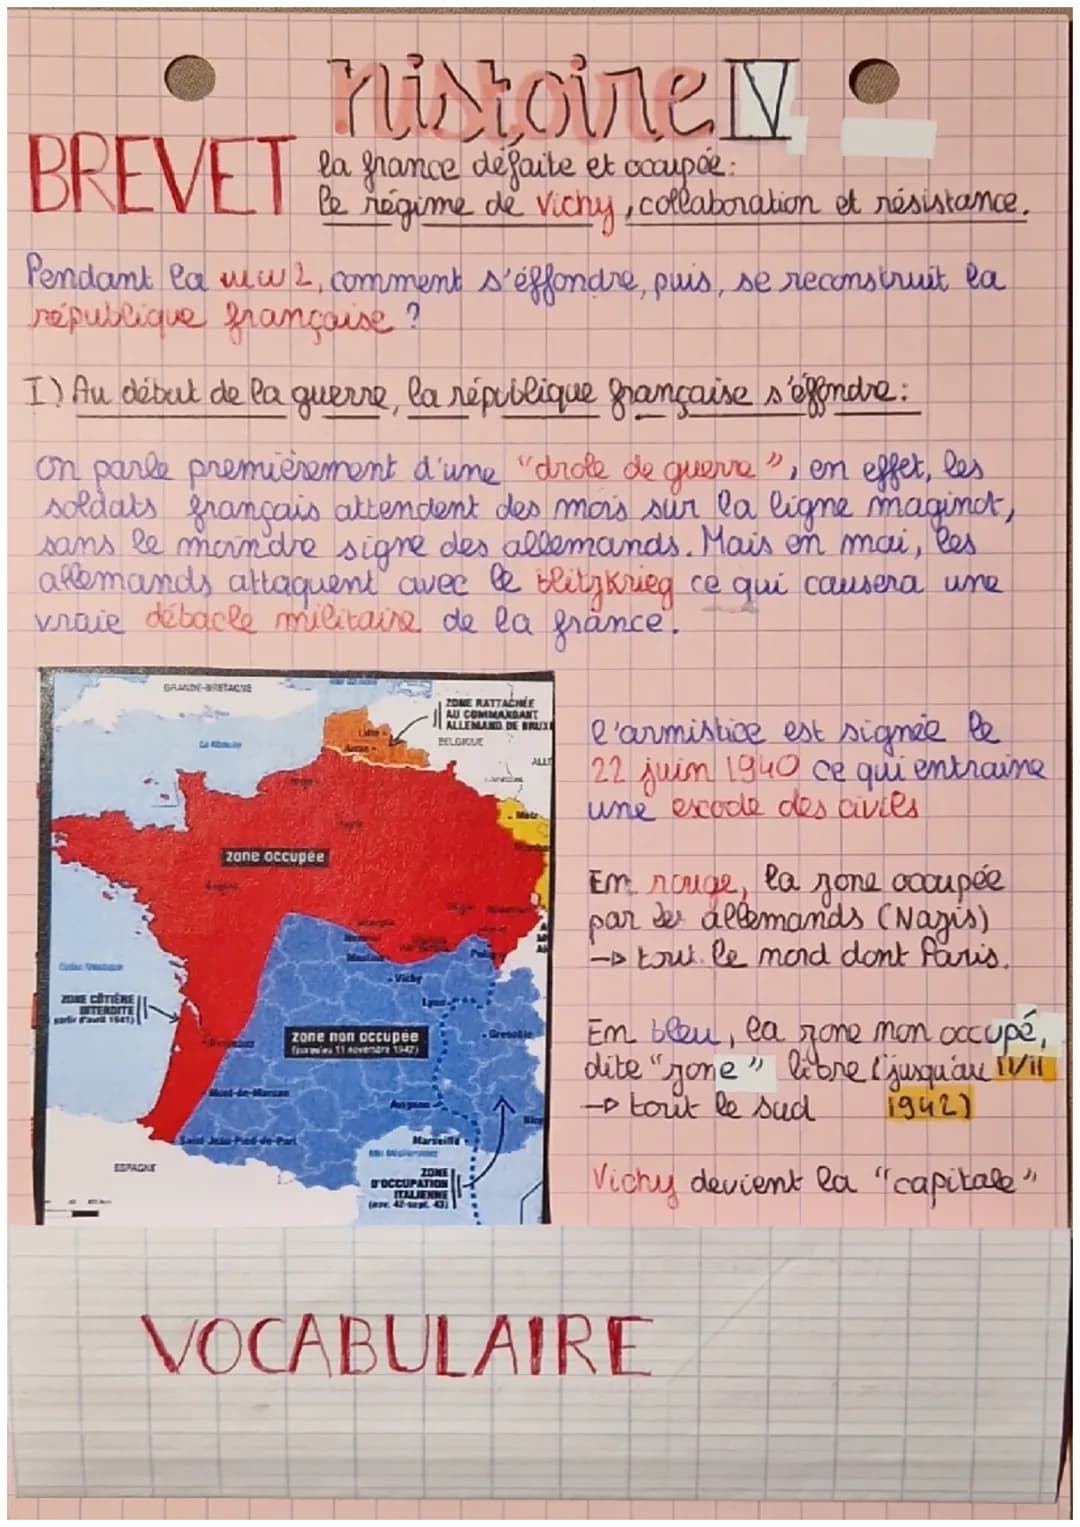 histoire IV
BREVET
la france défaite et occupée:
le régime de Vichy, collaboration et résistance.
Pendant la ww2, comment s'éffondre, puis, se reconstruit la
république française ?
I) Au début de la guerre, la république française s'éffondre:
on parle premièrement d'une "drole de guerre", en effet, les
soldats français attendent des mois sur la ligne maginot,
sans le moindre signe des allemands. Mais en mai, les
allemands attaquent avec le blitzkrieg ce qui causera une
vraie débacle militaire de la france.
GRANDE-BRETAGNE
ZONE RATTACHÉE
AU COMMANDANT
ALLEMAND DE BRUX
BELGIQUE
Metz
zone occupée
Vichy
Lyon
ZONE CÔTIÈRE
INTERDITE
zone non occupée
(jusqu'au 11 novembre 1942)
Grenoble
Mont-de-Marsan
Avignon
Saint-Jean-Pied-de-Port
Marseille
ESPAGNE
ZONE
D'OCCUPATION
ITALIENNE
(nov. 42-sept. 43)
l'armistice est signée le
22 juin 1940 ce qui entraine
une exode des civils
En rouge, la zone occupée
par les allemands (Nazis)
→ tout le nord dont Paris.
En bleu, la zone non occupé,
dite "zone" libre (jusqu'au 11/11
1942)
→ tout le sud
Vichy devient la "capitale"
VOCABULAIRE